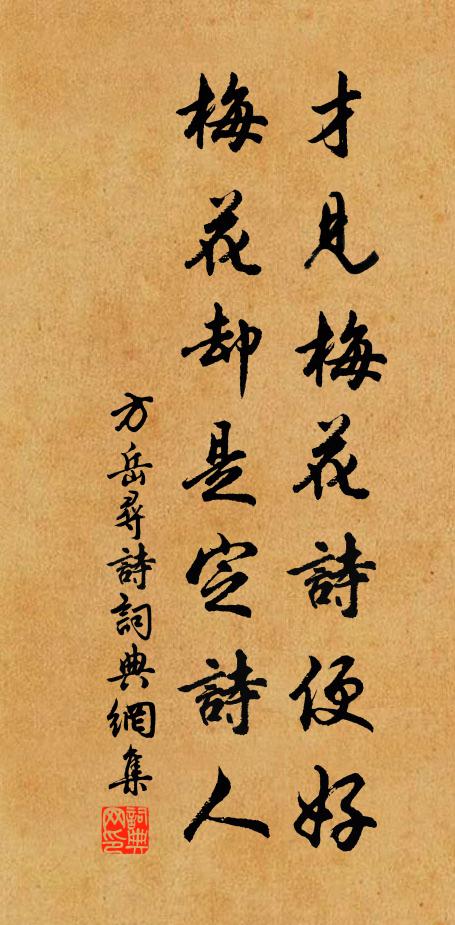 才見梅花詩便好
梅花却是定詩人
方岳尋詩詞典網集
詞典网印